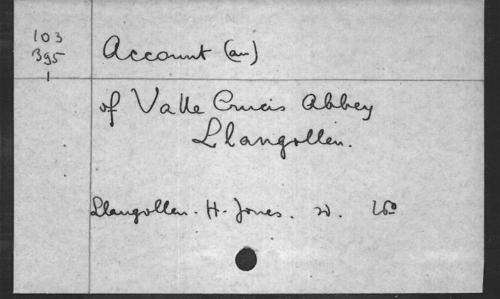 103
B95
1
Account (an)
of Valle Crucis Abbey
Llangollen.
Llangollen. H. Jones.